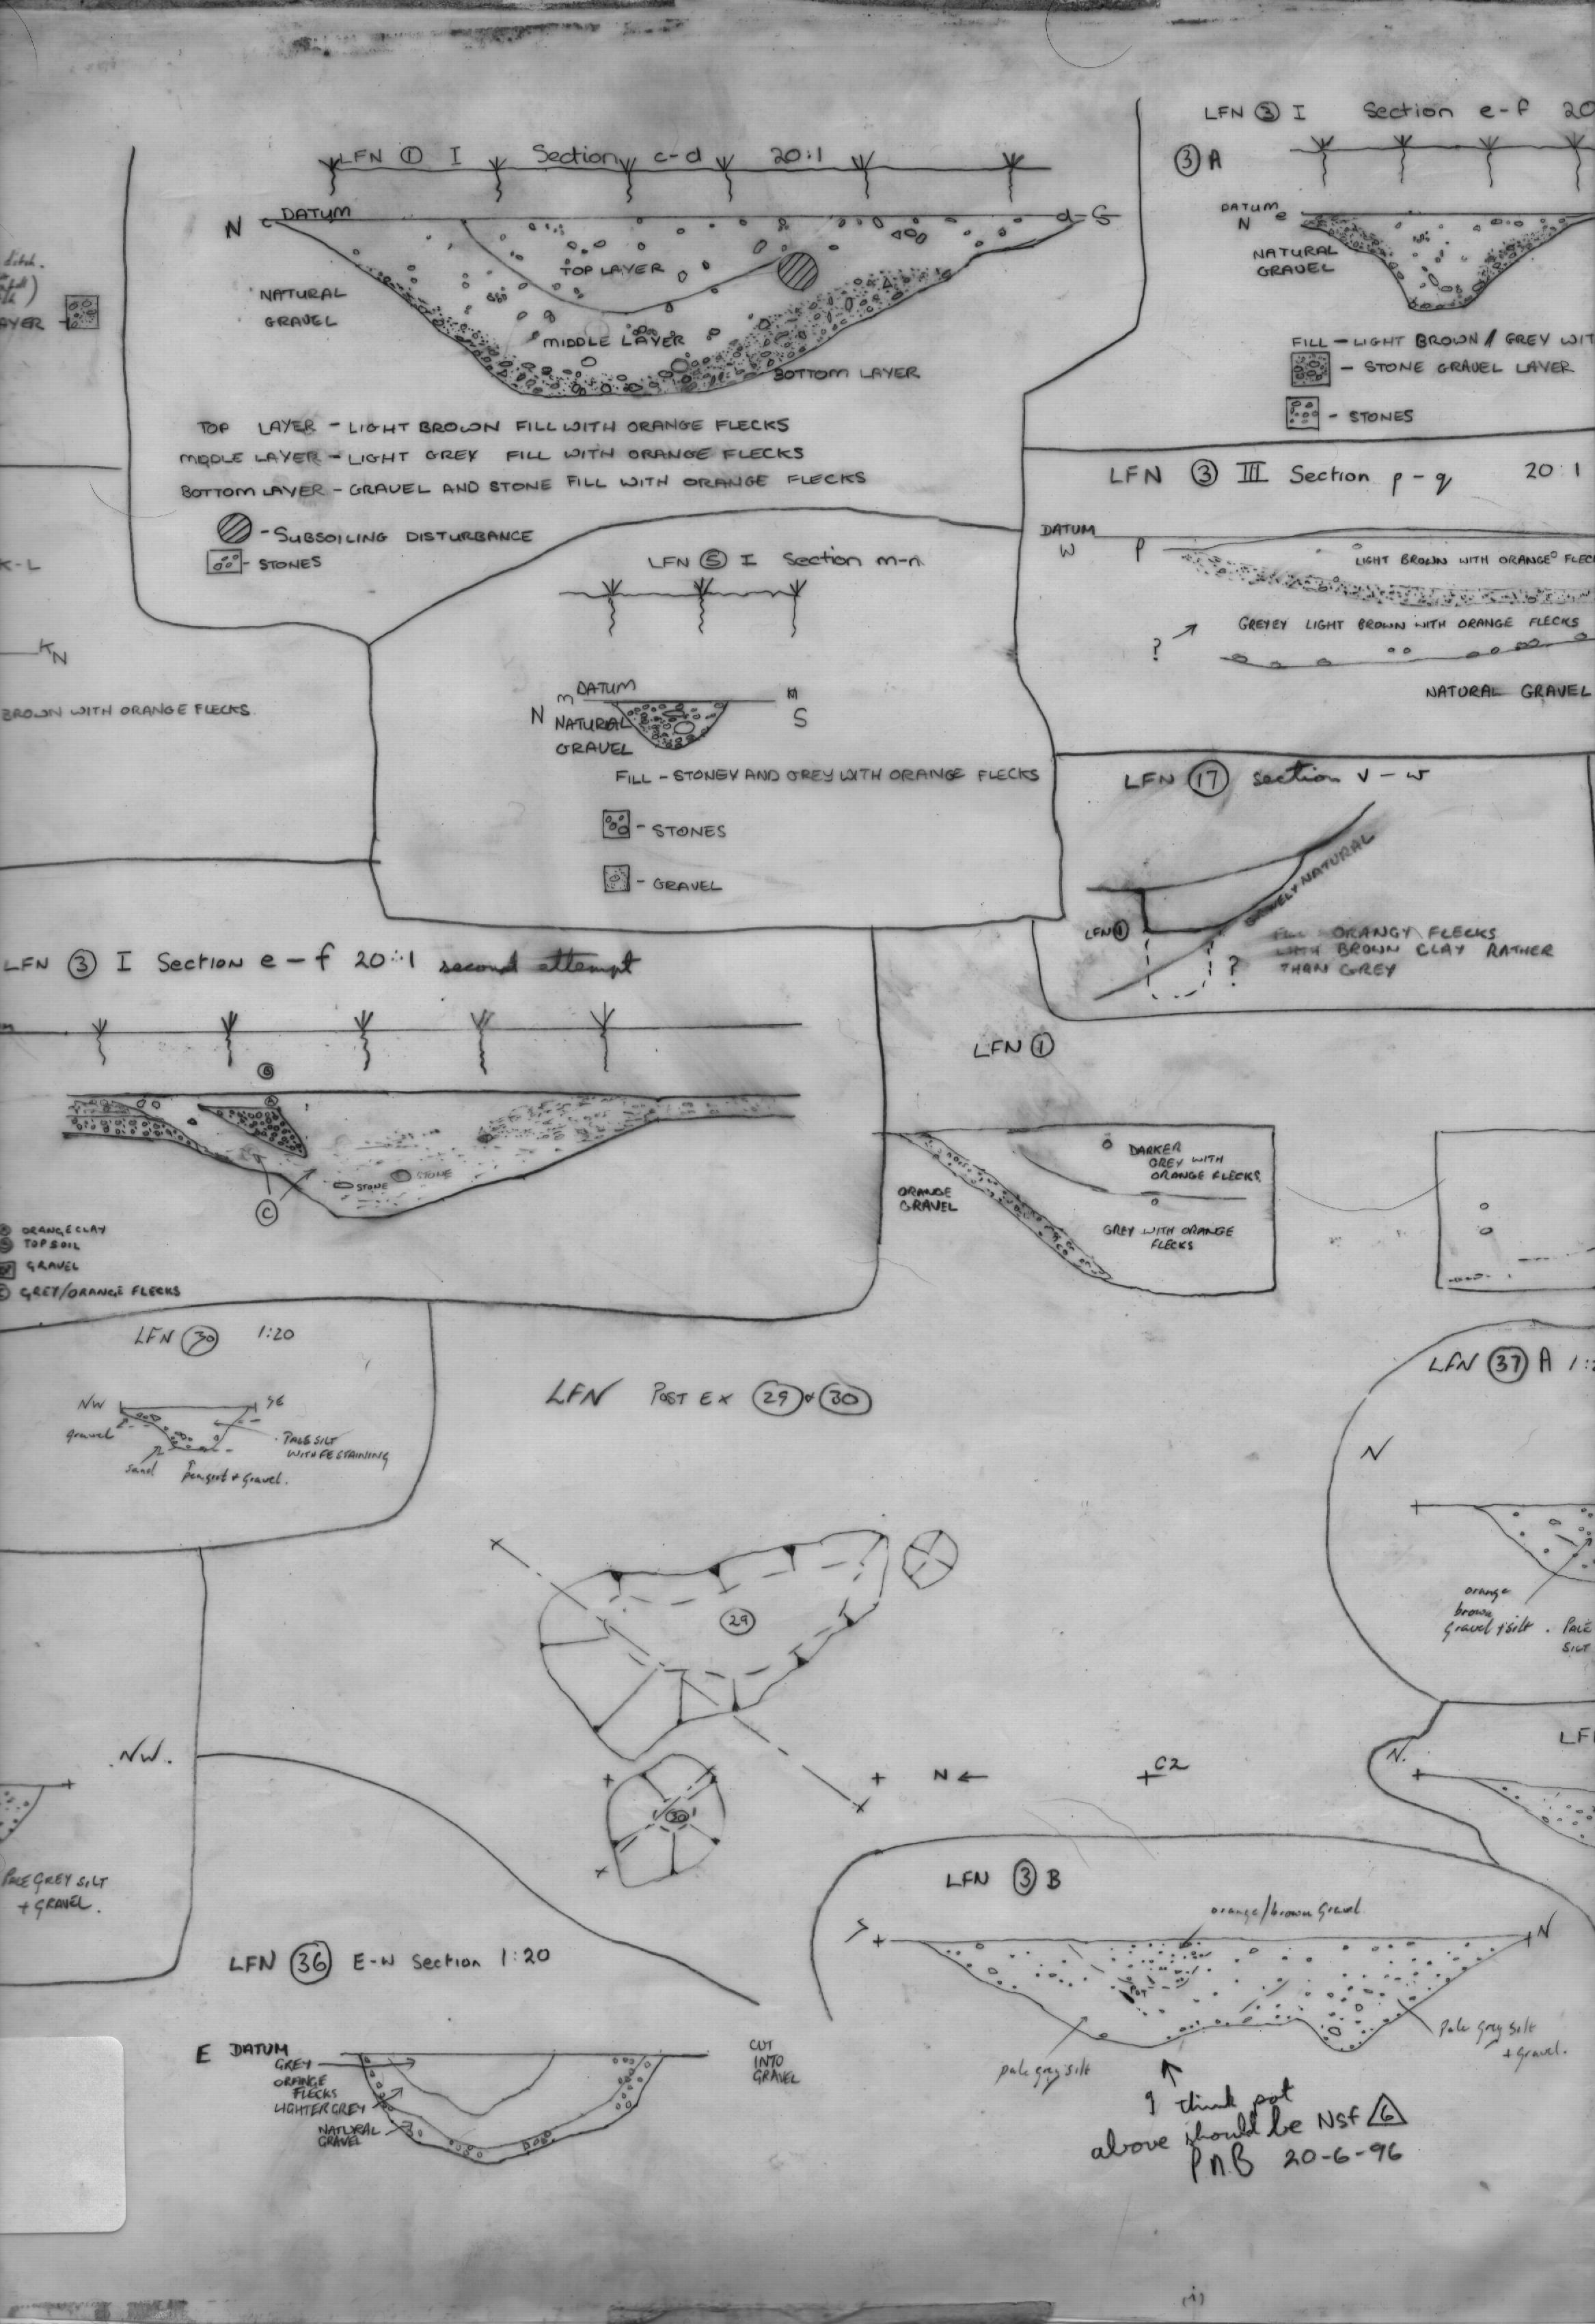 LFN ① I Section c-d 20:1
N c DATUM d S
TOP LAYER
NATURAL
GRAVEL
MIDDLE LAYER
BOTTOM LAYER
TOP LAYER - LIGHT BROWN FILL WITH ORANGE FLECKS
MIDDLE LAYER - LIGHT GREY FILL WITH ORANGE FLECKS
BOTTOM LAYER - GRAVEL AND STONE FILL WITH ORANGE FLECKS
- SUBSOILING DISTURBANCE
- STONES
ditch.
AYER
K-L
K N
BROWN WITH ORANGE FLECKS
LFN ③ I Section e-f 20
③ A
DATUM e
N
NATURAL
GRAVEL
FILL - LIGHT BROWN / GREY WIT
- STONE GRAVEL LAYER
- STONES
LFN ③ III Section p - q 20:1
DATUM
W P
LIGHT BROWN WITH ORANGE FLEC
GREYEY LIGHT BROWN WITH ORANGE FLECKS
?
NATURAL GRAVEL
LFN ⑤ I Section m-n
m DATUM M
N NATURAL S
GRAVEL
FILL - STONEY AND GREY WITH ORANGE FLECKS
- STONES
- GRAVEL
LFN ⑰ section v - w
GRAVELY NATURAL
LFN ①
FILL ORANGY FLECKS
WITH BROWN CLAY RATHER
THAN GREY
?
LFN ③ I Section e - f 20:1 second attempt
B
A
STONE STONE
C
A ORANGE CLAY
B TOP SOIL
GRAVEL
C GREY/ORANGE FLECKS
LFN ①
DARKER
GREY WITH
ORANGE FLECKS
ORANGE
GRAVEL
GREY WITH ORANGE
FLECKS
LFN ㉚ 1:20
NW SE
gravel
PALE SILT
WITH FE STAINING
sand
+ gravel.
LFN POST EX ㉙ & ㉚
29
30
N ←
C2
LFN ㊲ A 1:
N
orange
brown
gravel + silt . PALE
SILT
NW.
PALE GREY SILT
+ GRAVEL.
LF
N.
LFN ㊱ E-W Section 1:20
E DATUM
GREY
ORANGE
FLECKS
LIGHTER GREY
NATURAL
GRAVEL
CUT
INTO
GRAVEL
LFN ③ B
orange/brown gravel
S N
POT
pale grey silt
Pale grey silt
+ gravel.
I think pot
above should be NSF 6
P.A.B 20-6-96